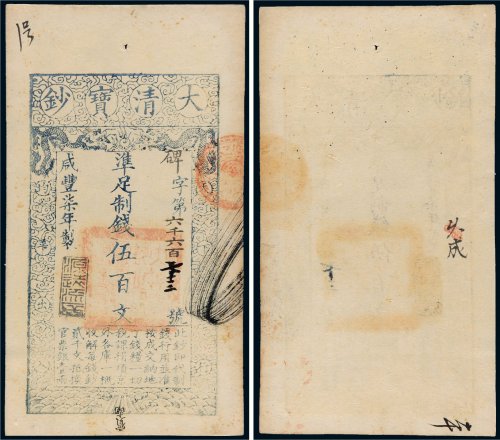 大清寶鈔
碑字第六千六百
號
準足制錢伍百文
咸豐柒年製
此鈔即代制
錢行用並准
按成交納地
丁錢糧一切
稅課捐項京
外各庫一概
收解每錢鈔
貳千文抵換
官票銀壹兩